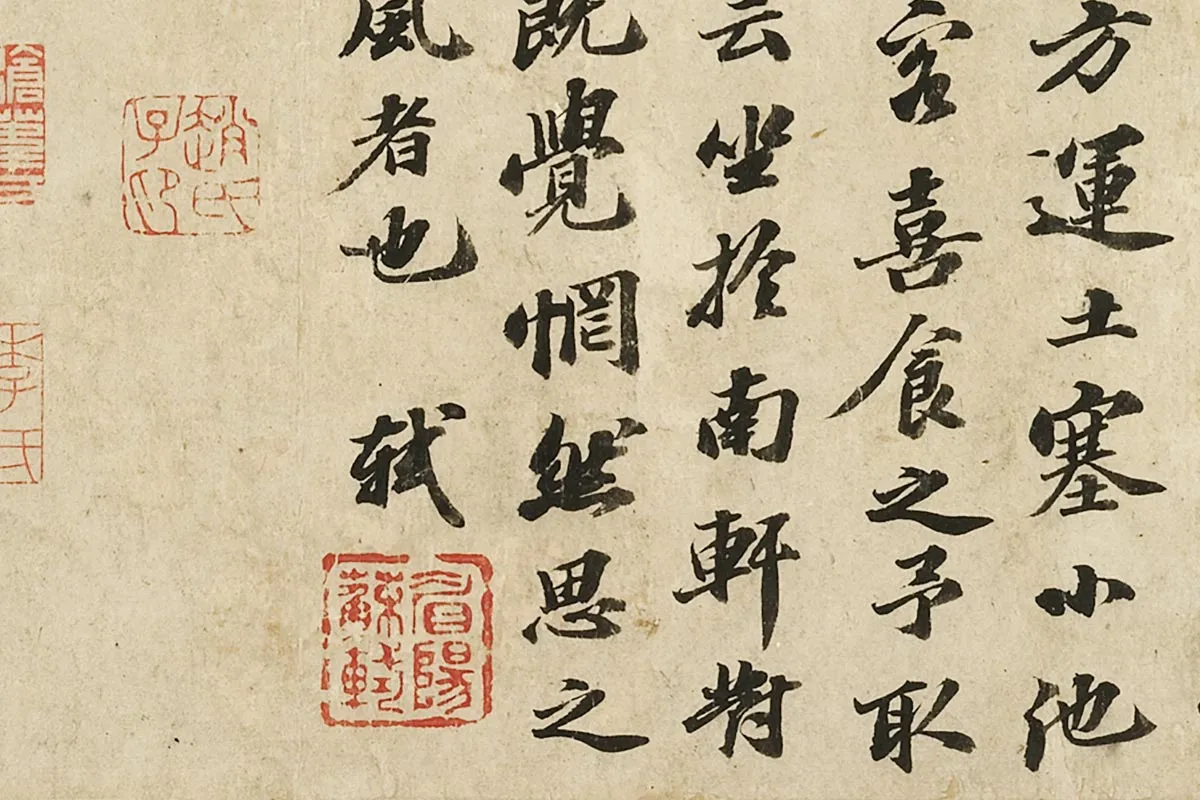 方運土塞小池
客喜食之予取
云坐於南軒對
既覺惘然思之
風者也 軾
眉陽蘇軾
趙氏子印